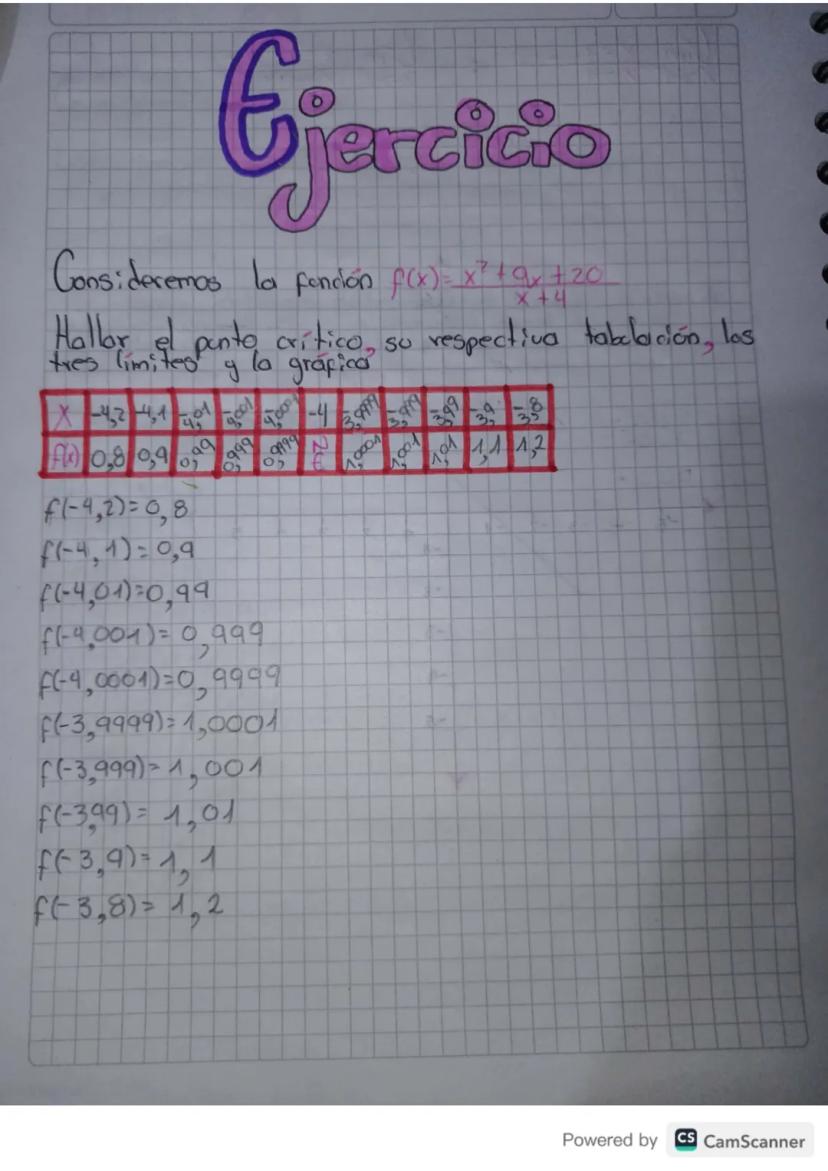 Ejercicio
Consideremos la función f(x)= x²+9x+20
x+4
Hallar el punto crítico, su respectiva tabulación, los
tres límites y la gráfica
x -4,2 -4,1 -4,01 -4,001 -4,0001 -4 -3,9999 -3,999 -3,99 -3,9 -3,8
f(x) 0,8 0,9 0,99 0,999 0,9999 1,0001 1,001 1,01 1,1 1,2
f(-4,2)=0,8
f(-4,1)=0,9
f(-4,01)=0,99
f(-4,001)=0,999
f(-4,0001)=0,9999
f(-3,9999)=1,0001
f(-3,999)=1,001
f(-3,99)=1,01
f(-3,9)=1,1
f(-3,8)=1,2
Powered by CS CamScanner